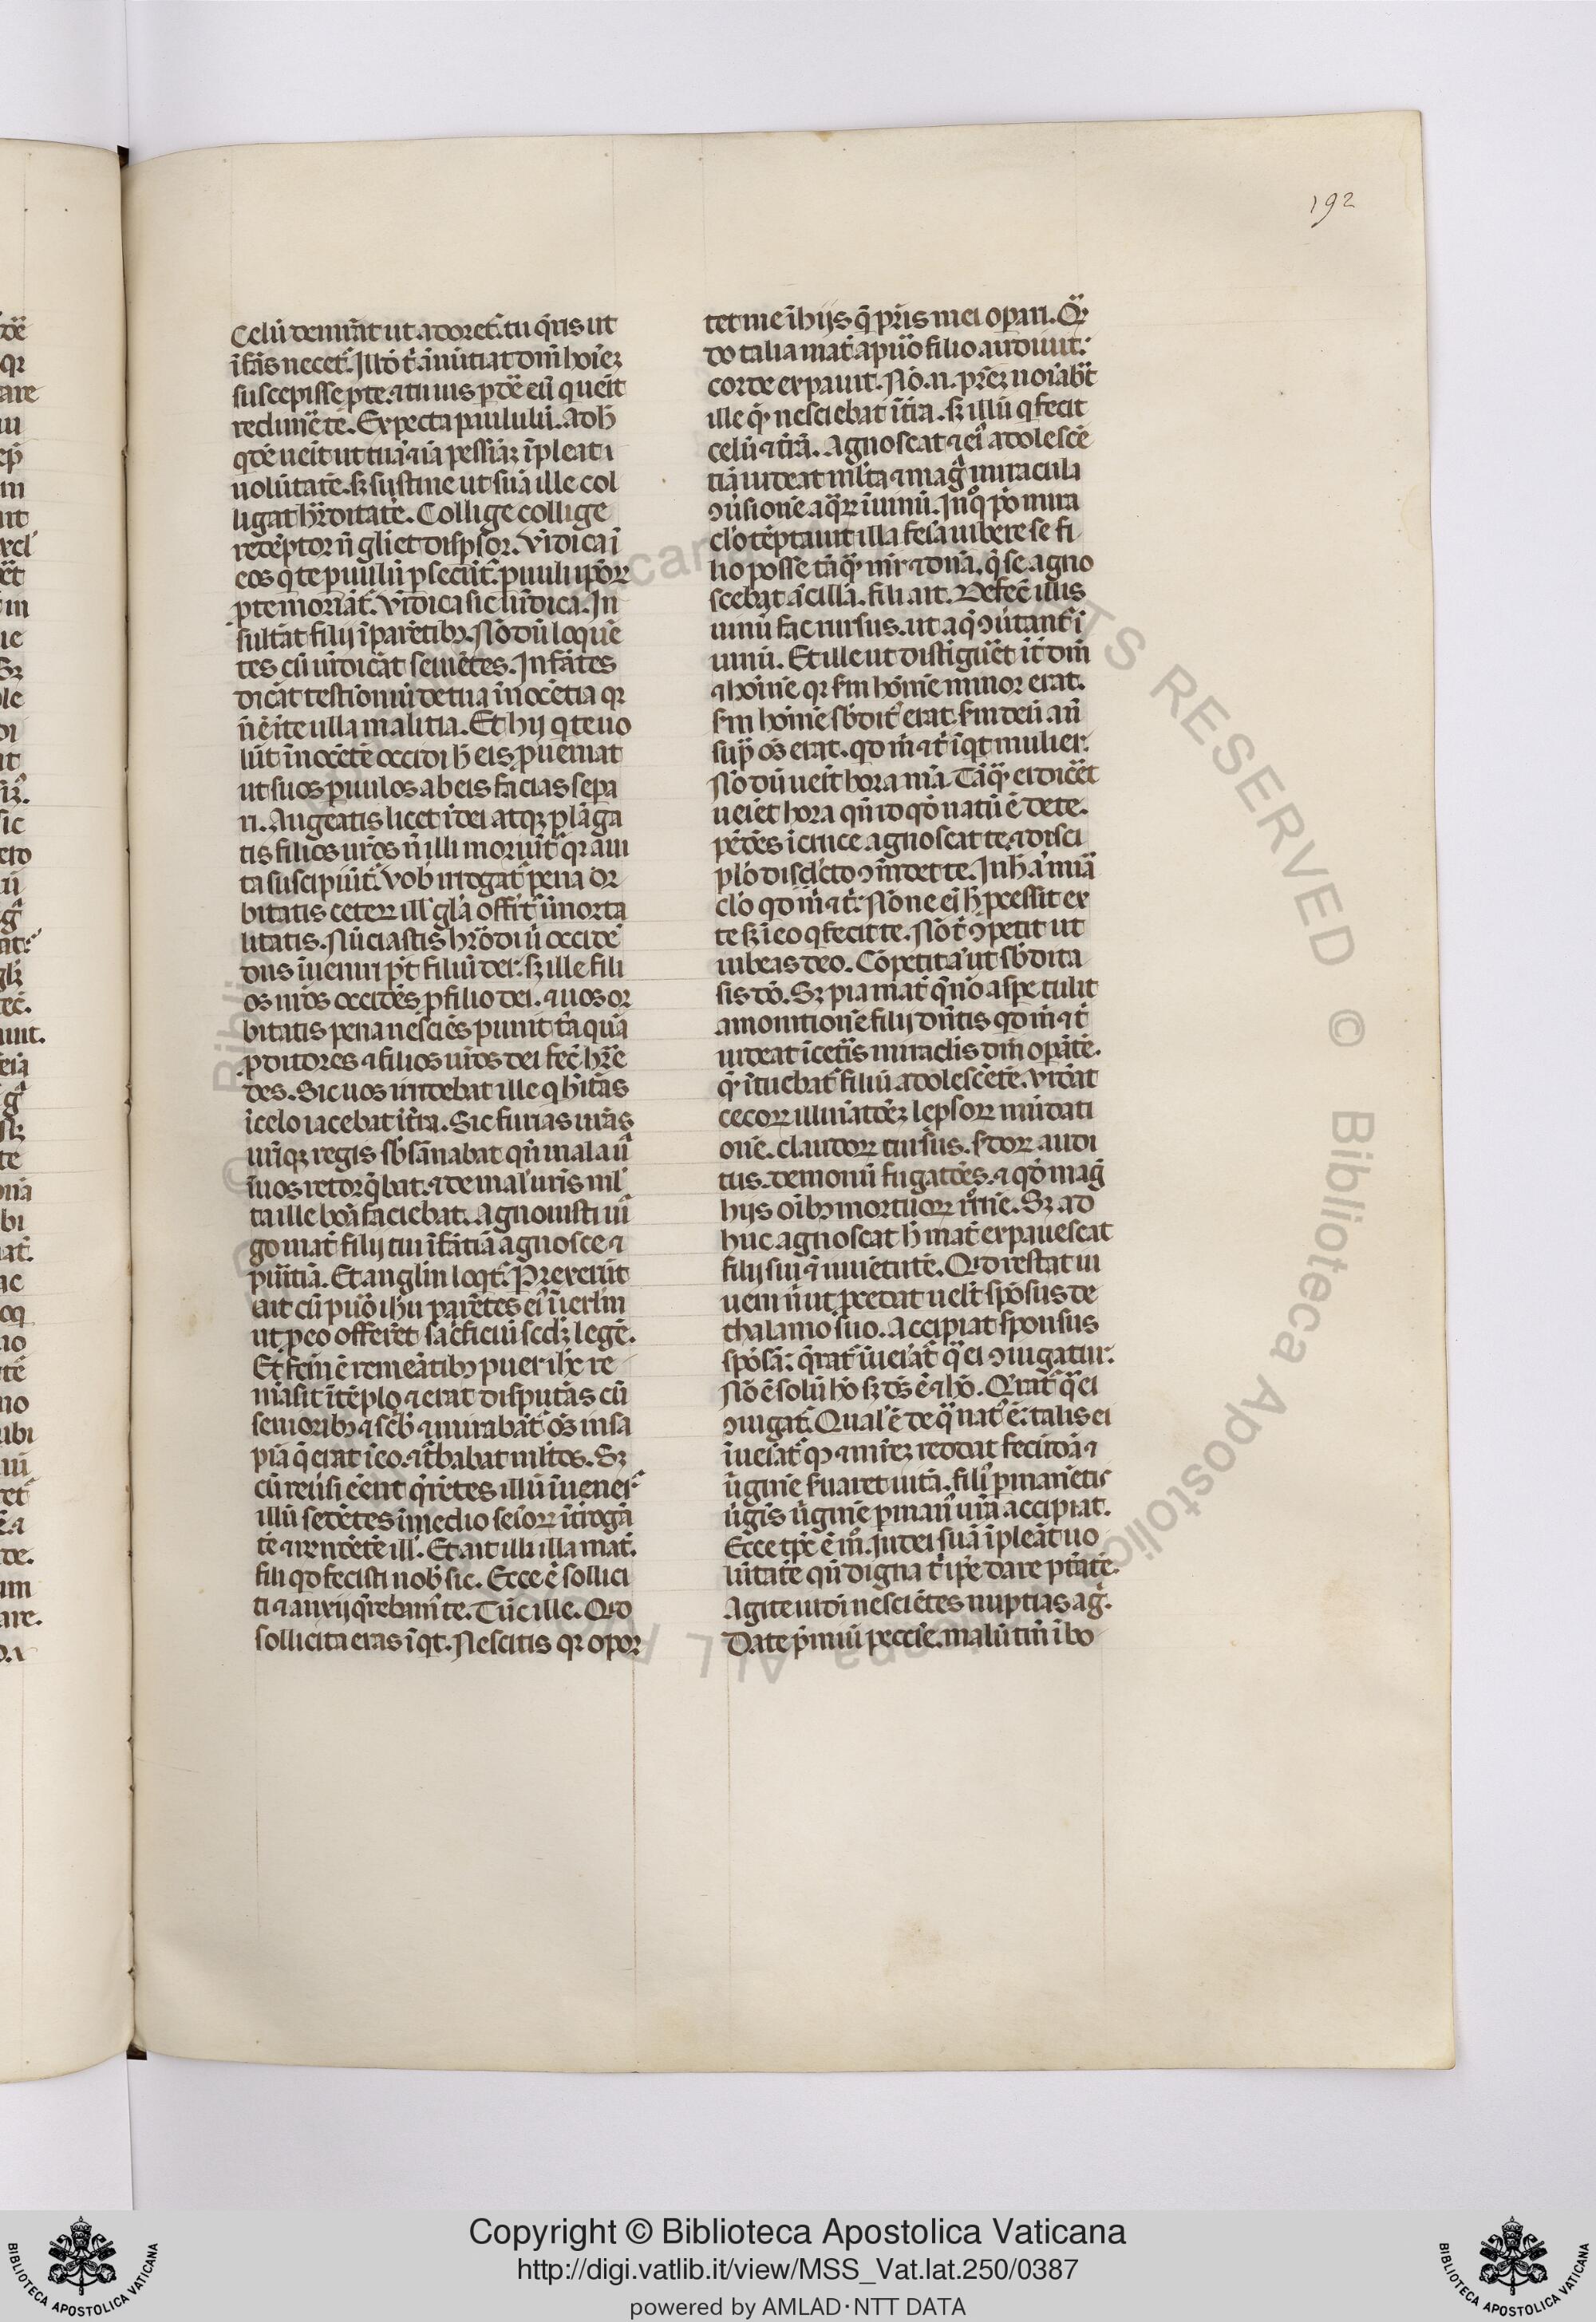 192
Celū demr̄at ut adoret᷑. tu q̄ris ut
īfās necet᷑. Illōt᷑ ānūtiat dn̄m hoīez
suscepisse p te. ⁊ tu uis p dē eū q ueīt
redimēte. Expecta paululū. Adh̄
qdē ueīt ut tuā ⁊iā pessiāz īpleat i
uolūtatē. sz sustine ut suā ille col
ligat hr̄ditatē. Collige collige
redēptor n̄ gl̄i et disp̱sor. Vīdica ī
eos q̄ te puulū psecūt᷑. puuli ip̄oꝝ
p te moriāt᷑. Vīdica sic iīdica. In
sultāt filij ī parētibꝫ. Nō dū loquē
tes cū uīdicāt seuiētes. Infātes
dicāt testimoniū de tua īnocētia qr
n̄ ē ī te ulla malitia. Et hij q te uo
lūt īnocētē occidi h̄ eis p̱ueniat
ut suos puulos ab eis facias sepa
ri. Augeatis licet ī dei atqz plāga
tis filios ur̄os n̄ illi moriūt᷑ qr a uī
ta suscipiūt᷑. Vob̄ irrogat᷑ pena or
bitatis ceteꝝ ill' gl̄a offīt᷑ īmorta
litatis. Nūciastis hr̄odi ū occidē
dus īueniri pt̄ filiū dei: sz ille fili
os ur̄os occidēs p filio dei. ⁊ uos or
bitatis pena nesciēs punit tāquā
p̱ditores ⁊ filios ur̄os dei fec̄ hr̄e
des. Sic uos irridebat ille q hītās
ī celo iacebat ī tr̄a. Sic furias ur̄as
ur̄iqz regis sb̄sānabat qn̄ mala ū
ī uos retorq̄bat. ⁊ de mal' ur̄is ml'
ta ille bōa faciebat. Agnouisti uī
go mat᷑ filij tui īfātiā agnosce ⁊
puīitiā. Et anglin loqt᷑. Prexerūt
ait cū puo ih̄u parētes ei᷒ īierlm
ut p eo offeret sac̄ficiū scdz legē.
Et fem̄ ē remeātibꝫ puer ih̄c re
māsit ī tēplo ⁊ erat disputās cū
senioribꝫ ⁊ sc̄b̄ ⁊ mirabāt᷑ oēs in sa
pīa q̄ erat ī eo. ⁊ t᷑babat ml̄tos. Sz
cū reūsi eēnt q̄rētes illū īuener᷑
illū sedētes ī medio seīoꝝ ītrogā
tē ⁊ rn̄dētē ill'. Et ait illi illa mat᷑.
fili qd fecisti nob̄ sic. Ecce ē sollici
ti ⁊ anxij q̄rebam᷒ te. Tūc ille. Qd
sollicita eras īqt. Nescitis qr opor
tet me ī hijs q̄ pr̄is mei opari. Qn̄
do talia mat᷑ a puo filio audiuit:
corde expauit. Nō. n. pr̄ez noīabit
ille q̄ nesciebat ī tr̄a. sz illū q fecit
celū ⁊ tr̄ā. Agnoscat ⁊ ei᷒ adolescē
tiā uideat ml̄ta ⁊ mag᷑ miracula
ꝯuersionē aqꝝ ī uinū. In q᷒ po mira
cl'o tēptauit illa fēīa iubere se fi
lio posse tāqȝ mr̄ ⁊ dn̄a. q̄ se agno
scebat ācillā. fili ait. Defec̄ illis
uinū fac rursus. ut aq̄ ꝯūtant᷑ ī
uinū. Et ille ut distigūet īt᷑ dm̄
⁊ hoīnē qr fm hoīnē minor erat.
fm hoīnē sb̄dit᷒ erat. fm deū aū
sup oēs erat. qd m̄ ⁊ t᷑ īqt mulier.
Nō dū ueīt hora m̄a. Tāqȝ ei dicēt
ueīet hora qn̄ id qd natū ē de te.
pēdēs ī cruce agnoscat te ⁊ disci
pl'o dilecto ꝯm̄det te. In h̄ āt mīa
cl'o qd m̄ ⁊ t᷑. Nōne ei h̄ pcessit ex
te sz ī eo q fecit te. Nō t᷑ ꝯpetit ut
iubeas deo. Cōpetit āt ut sb̄dita
sis dō. Sz pia mat᷑ q̄ nō aspe tulit
amonitionē filij dn̄tis qd m̄ ⁊ t᷑
uideat ī cet᷑is miraclis dm̄ opātē.
q̄ ītuebat᷑ filiū adolescētē. Vidāt
cecoꝝ illuīatōez lepsoꝝ mūdati
onē. claudoꝝ cursus. sdoꝝ audi
tus. demonū fugatōes. ⁊ qd mag̱
hijs oībꝫ mortuoꝝ r᷒m̄ē. Sz ad
huc agnoscat h̄ mat᷑ expauescat
filij sui ⁊ iuuētutē. Qd restat iu
ueni n̄ ut pcedat uel᷑ spōsus de
thalamo suo. Accipiat sponsus
spōsā: q̄rat᷑ īueīat᷑ q̄ ei ꝯiugatur.
Nō ē solū hō sz dꝰ ē ⁊ hō. Qrat᷑ q̄ ei
ꝯiugat᷑. Qual' ē de q̄ nat᷒ ē: talis ei
īueīat᷑ q̄ ⁊ mr̄ez reddat fecūdā ⁊
ūginē suaret uitā. fili᷒ pmanētis
ūgīs ūginē pmanˉurā accipiat.
Ecce tp̄c ē m᷒. Iudei suā īpleāt uo
lūtatē qn̄ digna t᷑ ip̄e dare ptātē.
Agite iudi nesciētes nuptias ag̱.
Date pmiū pccīe. malū tm̄ ī bo